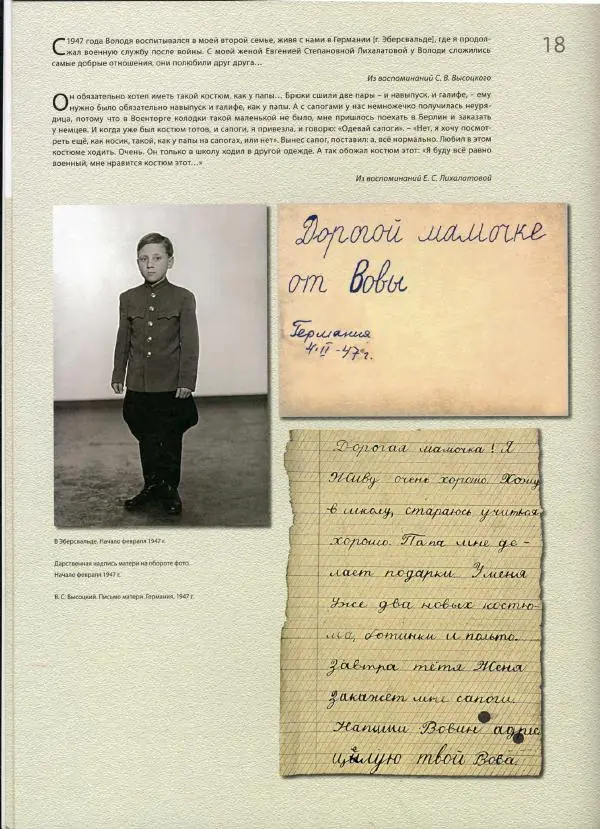 18
С 1947 года Володя воспитывался в моей второй семье, живя с нами в Германии [г. Эберсвальде], где я продол-
жал военную службу после войны. С моей женой Евгенией Степановной Лихалатовой у Володи сложились
самые добрые отношения, они полюбили друг друга…
Из воспоминаний С. В. Высоцкого
Он обязательно хотел иметь такой костюм, как у папы… Брюки сшили две пары – и навыпуск, и галифе, - ему
нужно было обязательно навыпуск и галифе, как у папы. А с сапогами у нас немножечко получилась неуря-
дица, потому что в Военторге колодки такой маленькой не было, мне пришлось поехать в Берлин и заказать
у немцев. И когда уже был костюм готов, и сапоги, я привезла, и говорю: «Одевай сапоги». – «Нет, я хочу посмот-
реть ещё, как носик, такой, как у папы на сапогах, или нет». Вынес сапог, поставил: а, всё нормально. Любил в этом
костюме ходить. Очень. Он только в школу ходил в другой одежде. А так обожал костюм этот: «Я буду всё равно
военный, мне нравится костюм этот…»
Из воспоминаний Е. С. Лихалатовой
Дорогой мамочке
от Вовы
Германия
4.II-47 г.
В Эберсвальде. Начало февраля 1947 г.
Дарственная надпись матери на обороте фото.
Начало февраля 1947 г.
В. С. Высоцкий. Письмо матери. Германия, 1947 г.
Дорогая мамочка! Я
живу очень хорошо. Хожу
в школу, стараюсь учиться
хорошо. Папа мне де-
лает подарки. У меня
уже два новых костю-
ма, ботинки и пальто.
Завтра тётя Женя
закажет мне сапоги.
Напиши Вовин адрес
цылую твой Вова.